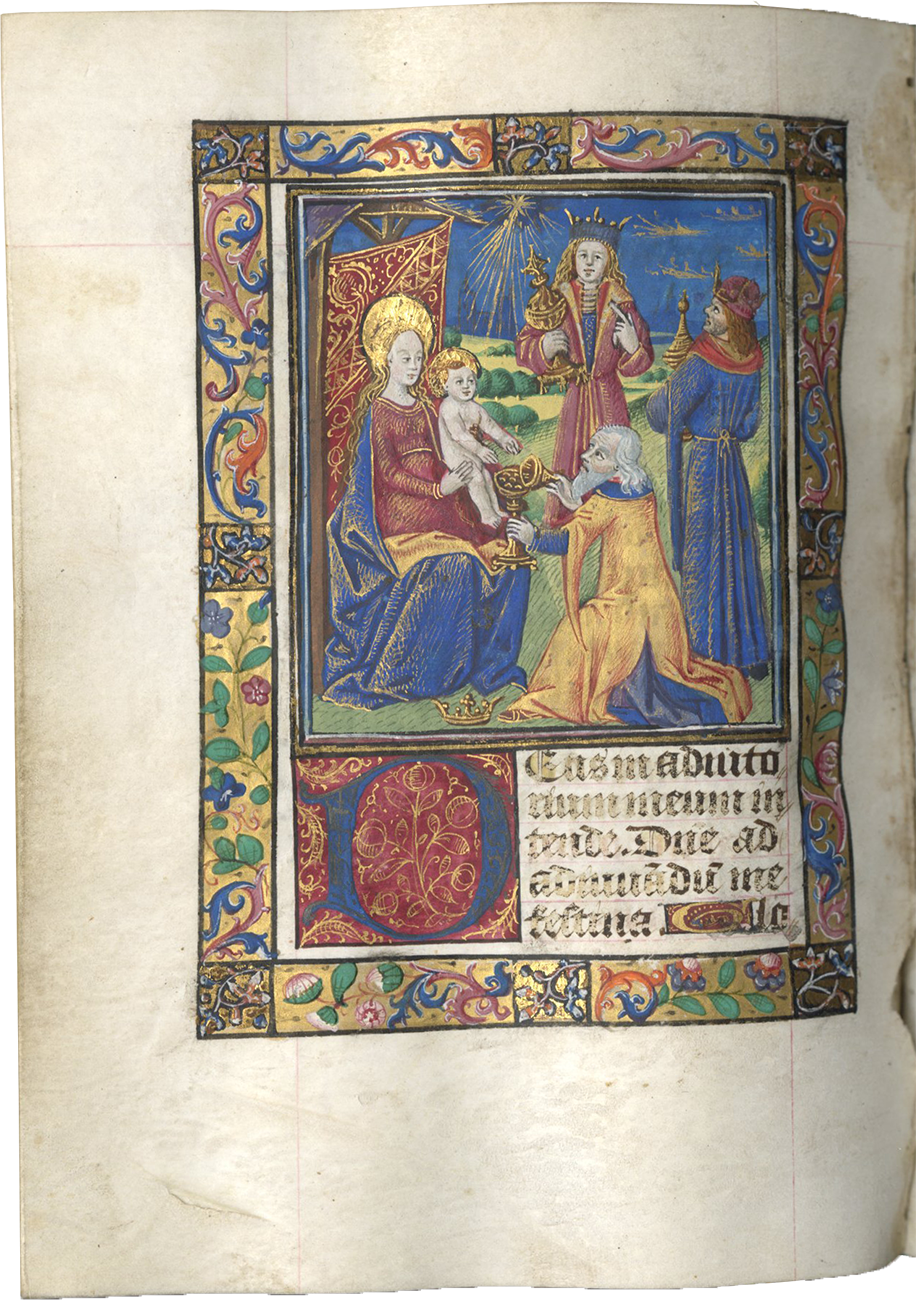 Deus in adiuto
rium meum in
tende. Dne ad
adiuuādū me
festina Gla